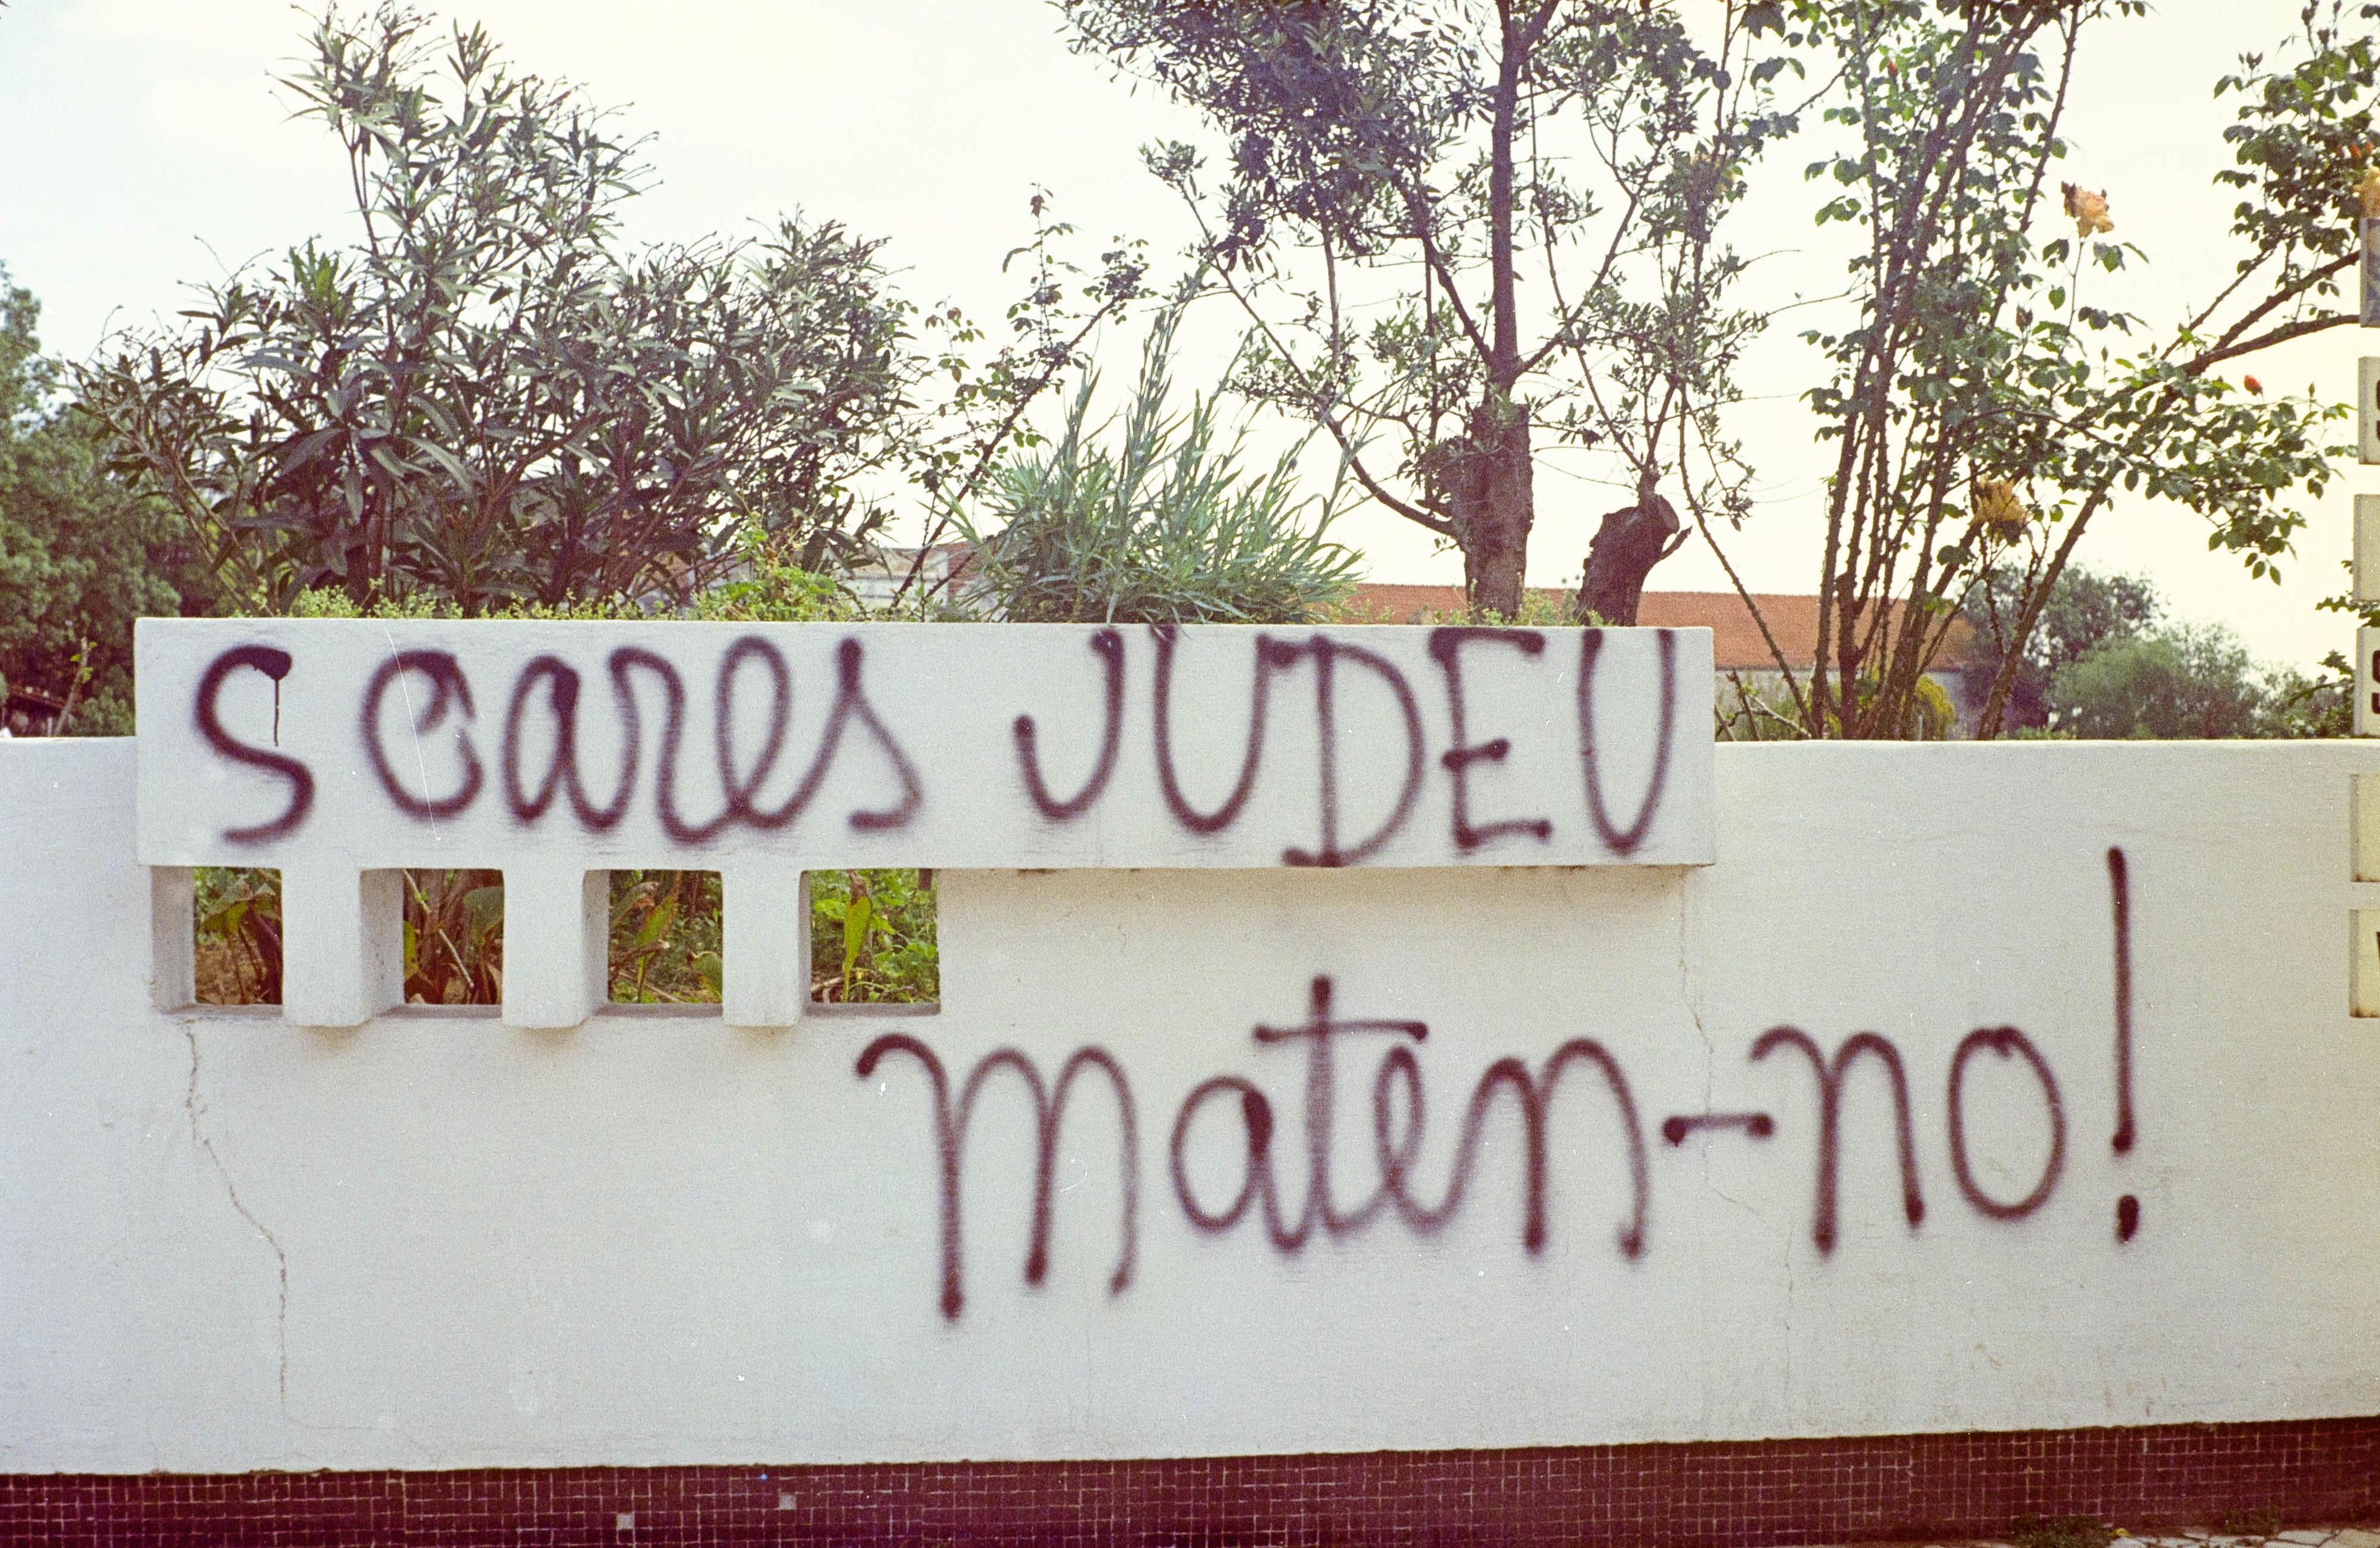 Soares JUDEU
maten-no!